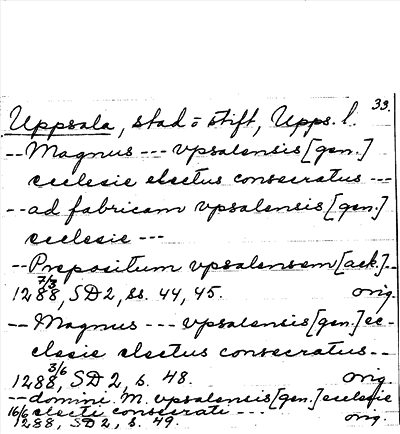 33.
Uppsala, stad o stift, Upps. l.
-- Magnus --- vpsalensis [gen.]
ecclesie electus consecratus ---
-- ad fabricam vpsalensis [gen.]
ecclesie ---
-- Prepositum vpsalensem [ack.] --
7/3
1288, SD 2, ss. 44, 45. orig.
-- Magnus --- vpsalensis [gen.] ec-
clesie electus consecratus --
3/6
1288, SD 2, s. 48. orig.
-- domini M. vpsalensis [gen.] ecclesie
16/6 electi consecrati ---
1288, SD 2, s. 49. orig.